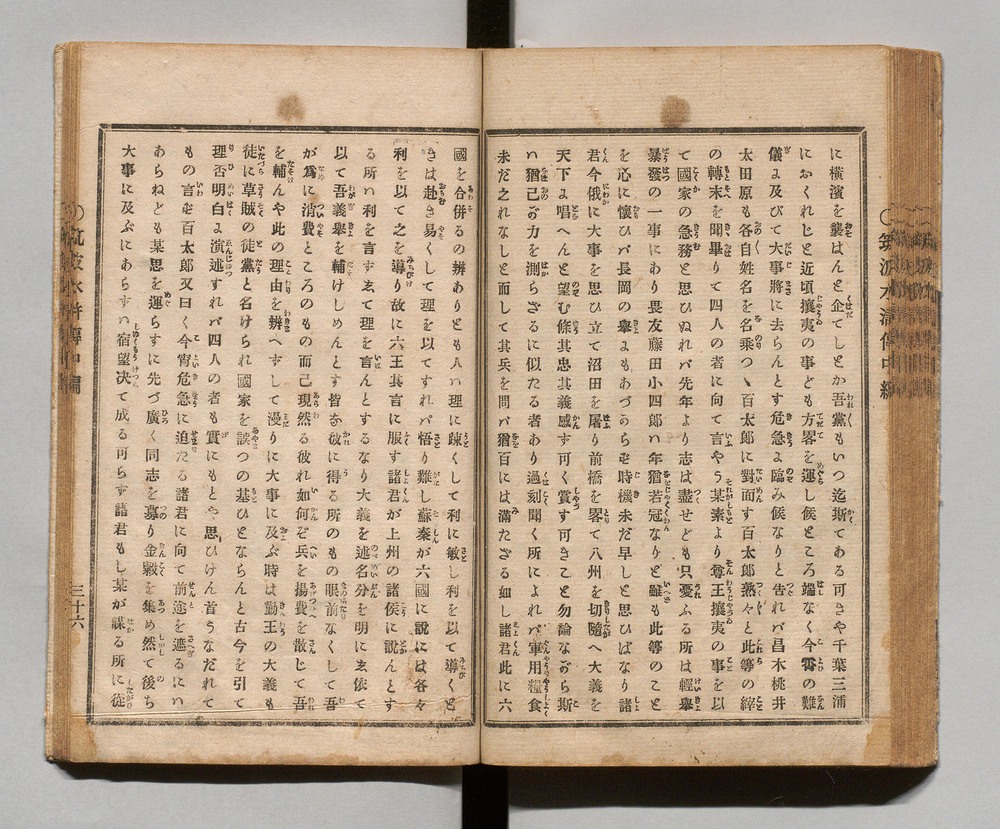 に橫濱を襲はんと企てしとか吾黨もいつ迄斯てある可きや千葉三浦
におくれじと近頃攘夷の事ども方畧を運し候ところ端なく今霄の難
儀よ及びて大事將に去らんとす危急よ臨み候なりと告れバ昌木桃井
太田原も各自姓名を名乘つゝ百太郎に對面す百太郎熟々と此等の綷
の轉末を聞畢りて四人の者に向て言やう某素より尊王攘夷の事を以
て國家の急務と思ひぬれバ先年より志は盡せども只憂ふる所は輕擧
暴發の一事にあり畏友藤田小四郎ハ年猶若冠なりと雖も此等のこと
を心に懷ひバ長岡の擧よもあづからを時機未だ早しと思ひばなり諸
君今俄に大事を思ひ立て沼田を屠り前橋を畧て八州を切隨へ大義を
天下よ唱へんと望む條其忠其義感す可く賞す可きこと勿論なぶら斯
ハ猶己ぶ力を測らざるに似たる者あり過刻聞く所によれバ軍用糧食
未だ之れなしと而して其兵を問バ猶百には滿たざる如し諸君此に六
國を合併るの辨ありとも人ハ理に踈くして利に敏し利を以て導くと
きは赴き易くして理を以てすれバ悟り難し蘇秦が六國に說には各々
利を以て之を導り故に六王其言に服す諸君が上州の諸侯に說んとす
る所ハ利を言すゑて理を言んとするなり大義を述名分を明にゑ依て
以て吾義擧を輔けしめんとす皆を彼に得る所のもの眼前なくして吾
が爲に消費ところのもの而己現然る彼れ如何を兵を揚費を散じて吾
を輔んや此の理由を辨へすして漫りに大事に及ぶ時は勤王の大義も
徒に草賊の徒黨と名けられ國家を誤つの基ひとならんと古今を引て
理否明白よ演述すれバ四人の者も實にもとや思ひけん首うなだれて
もの言を百太郎又曰く今宵危急に迫たる諸君に向て前途を遮るにハ
あらねども某思を運らすに先づ廣く同志を募り金穀を集め然て後ち
大事に及ぶにあらすハ宿望决て成る可らす諸君もし某が謀る所に從
三十六